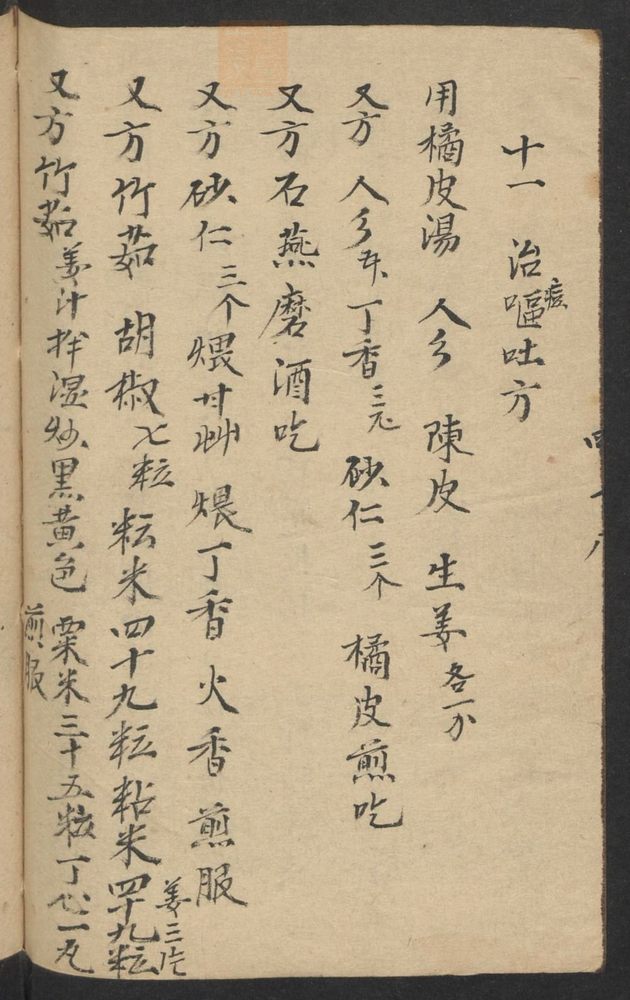 十一 治痘嘔吐方
用橘皮湯 人乡 陳皮 生姜各一分
又方 人乡 丁香三 砂仁三个 橘皮煎吃
又方石燕磨酒吃
又方砂仁三个煨甘艸煨丁香火香煎服
又方竹茹 胡椒七粒 粘米四十九粒姜三片
又方竹茹姜汁拌湿炒黑黄色 粟米三十五粒丁心一
煎服